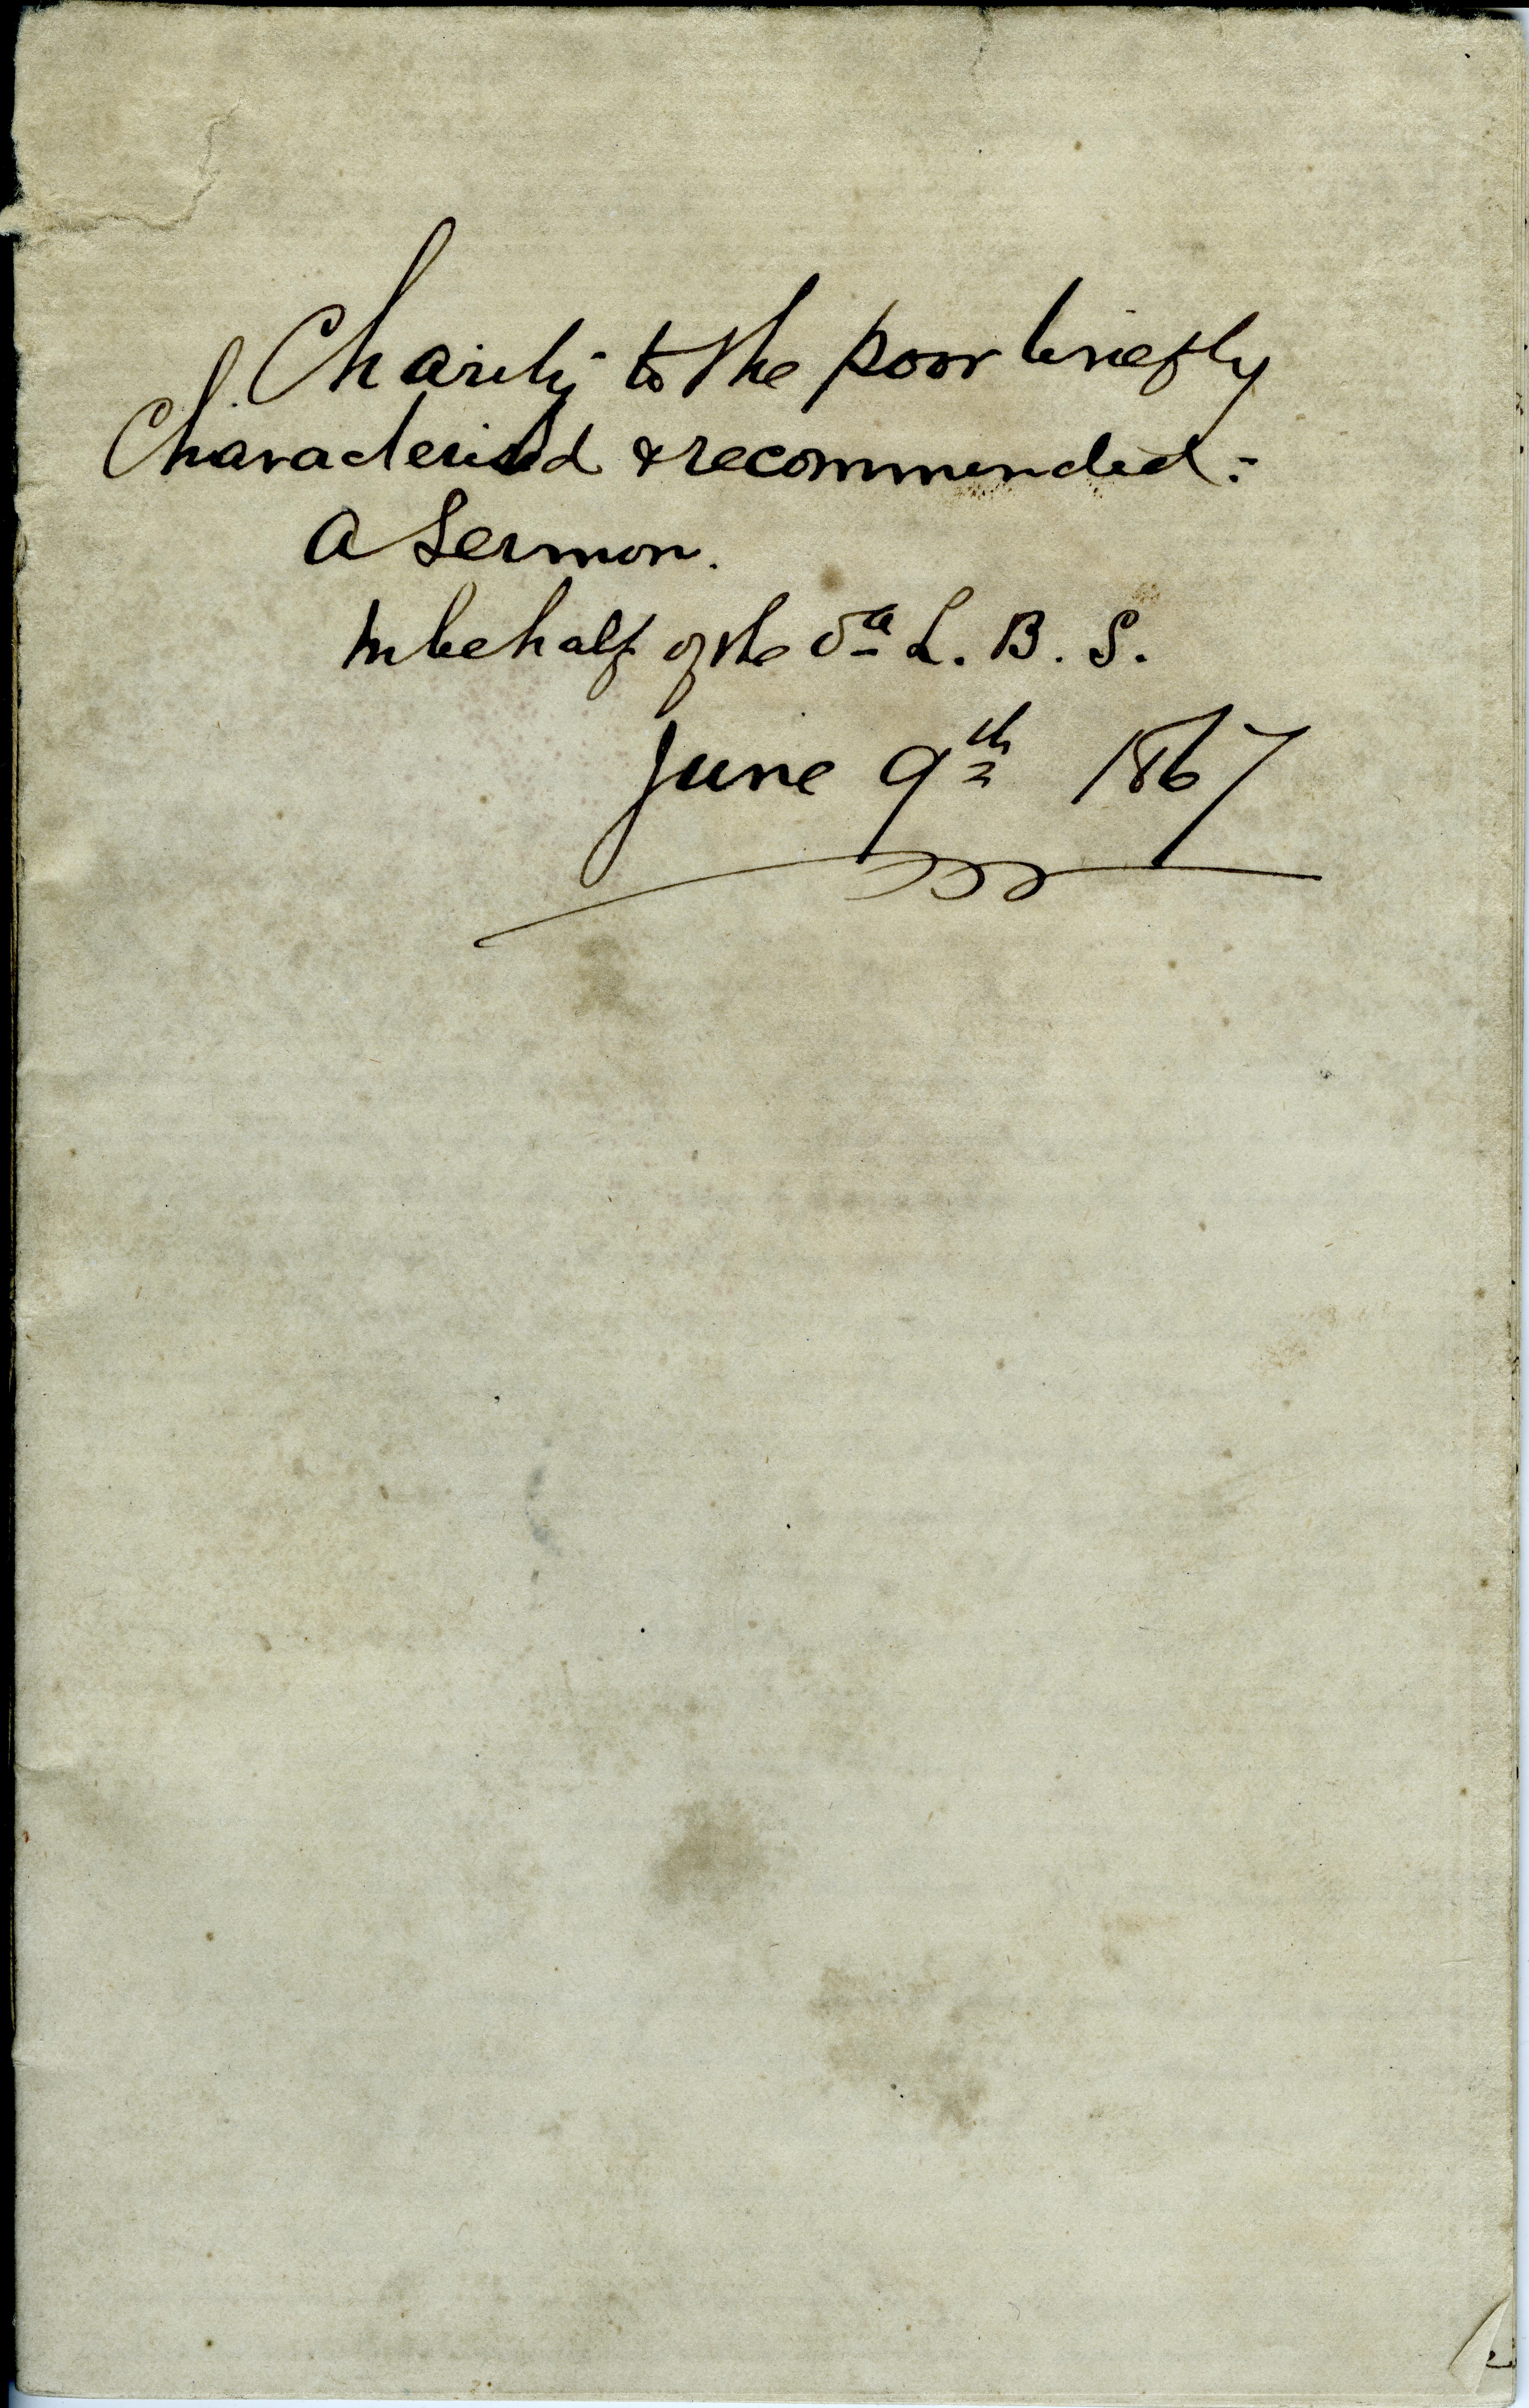 Charity to the poor briefly
Characterised & recommended:
A Sermon.
In behalf of the L. B. S.
June 9th 1867